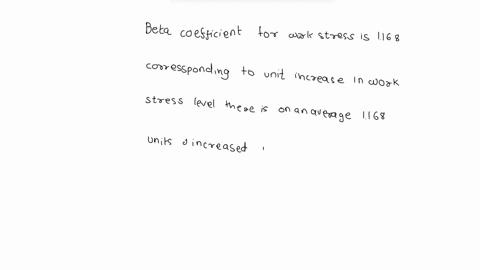 Beta coefficient for work stress is 1.168
corressponding to unit increase in work
stress level there is on an average 1.168
units increased